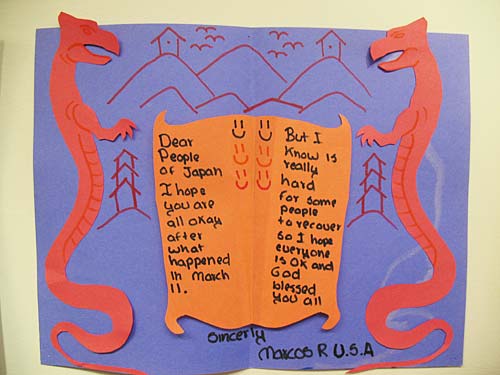 Dear
People
of Japan
I hope
you are
all okay
after
what
happened
in March
11.
But I
Know is
really
hard
for some
people
to recover
so I hope
everyone
is ok and
God
blessed
you all
sincerly
Marcos R U.S.A